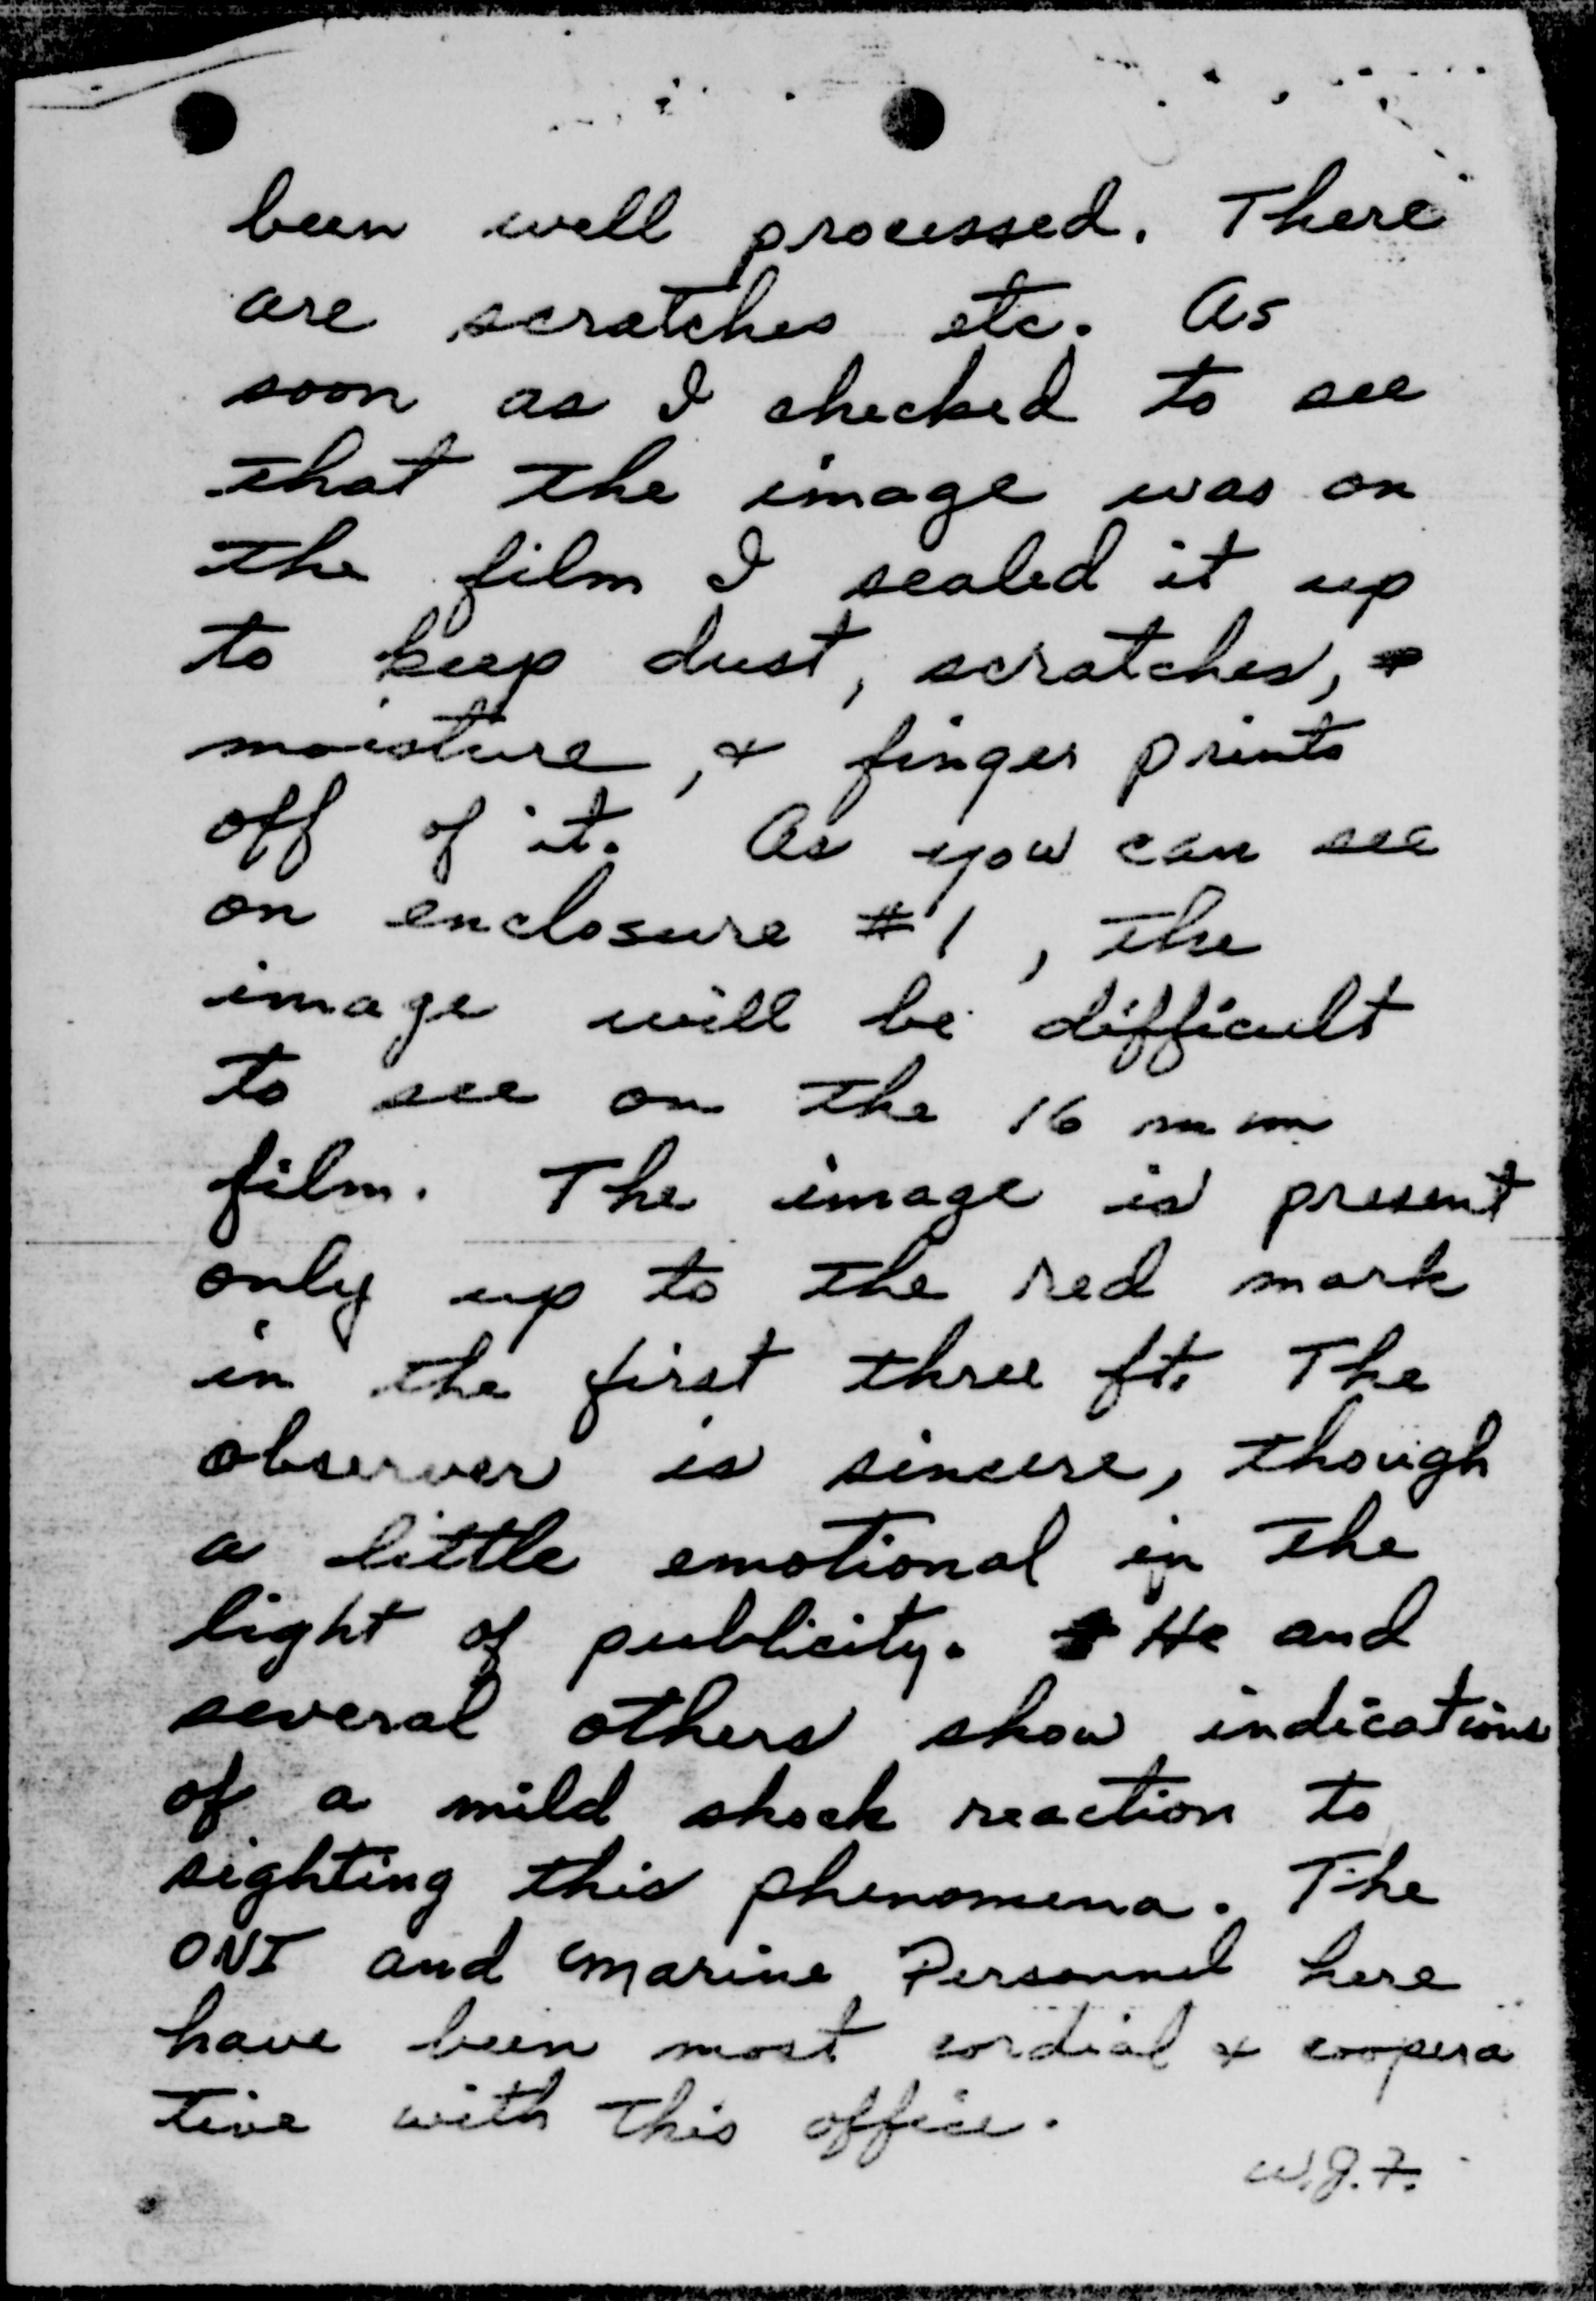 been well processed. There
are scratches etc. As
soon as I checked to see
that the image was on
the film I sealed it up
to keep dust, scratches,
moisture, & finger prints
off of it. As you can see
on enclosure #1, the
image will be difficult
to see on the 16 mm
film. The image is present
only up to the red mark
in the first three ft. The
observer is sincere, though
a little emotional in the
light of publicity. He and
several others show indications
of a mild shock reaction to
sighting this phenomena. The
ONI and Marine Personnel here
have been most cordial & coopera
tive with this office.
W.J.F.